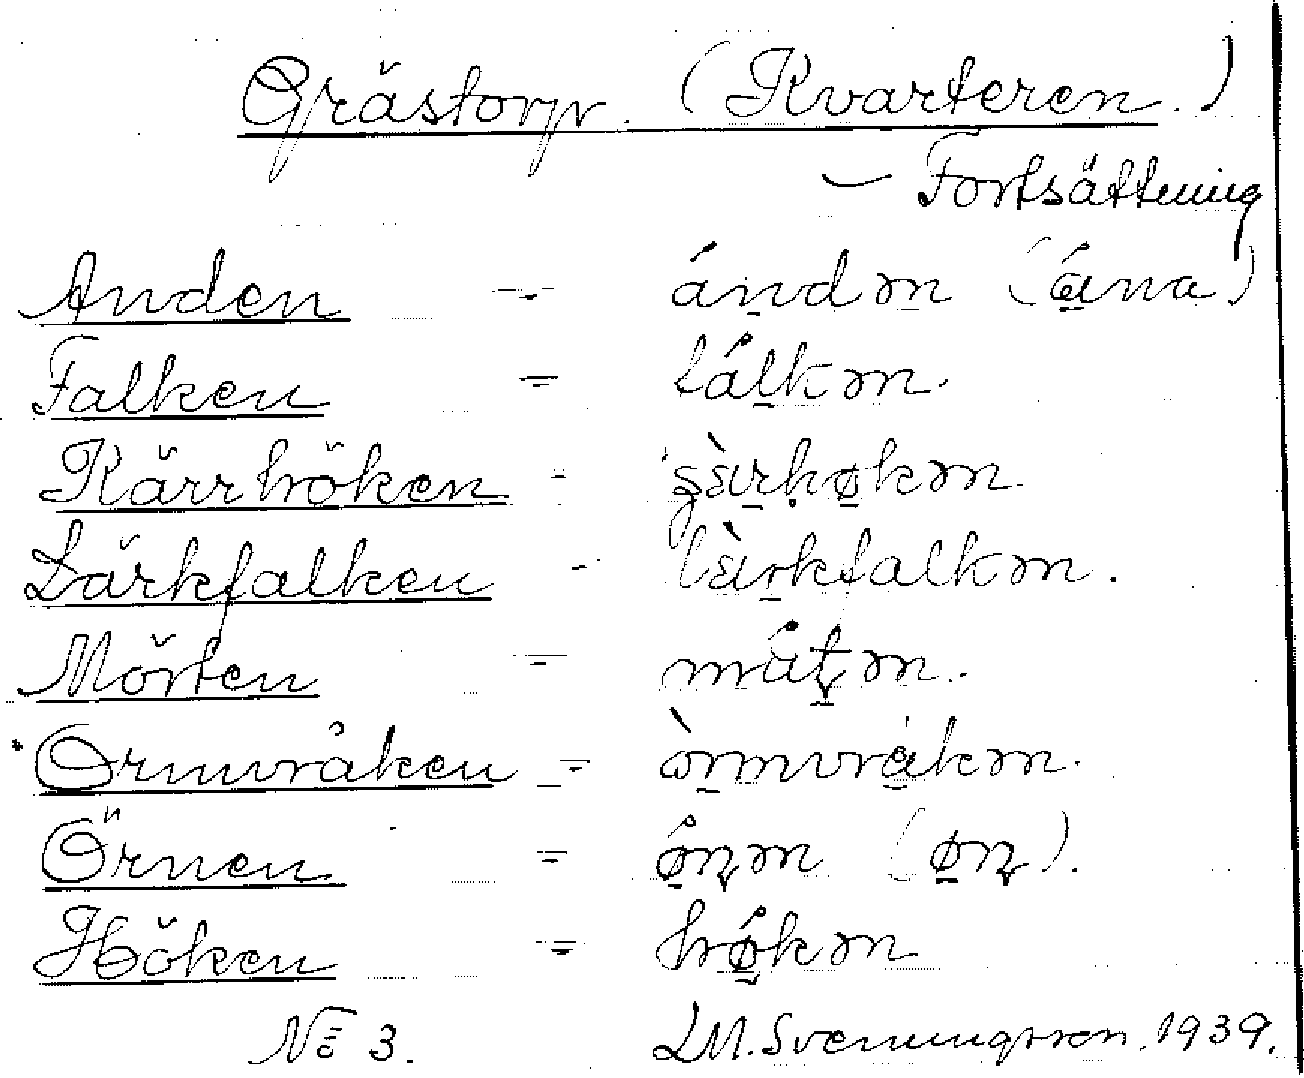 Grästorp. (Kvarteren.)
— Fortsättning
Anden = ándən (ána)
Falken = fálkən.
Kärrhöken = 
Lärkfalken - làrkfalkən.
Mörten =
Ormvråken =
Örnen = ǿɳən (øɳ).
Höken = hǿkən
No 3. LM. Svenungsson. 1939.